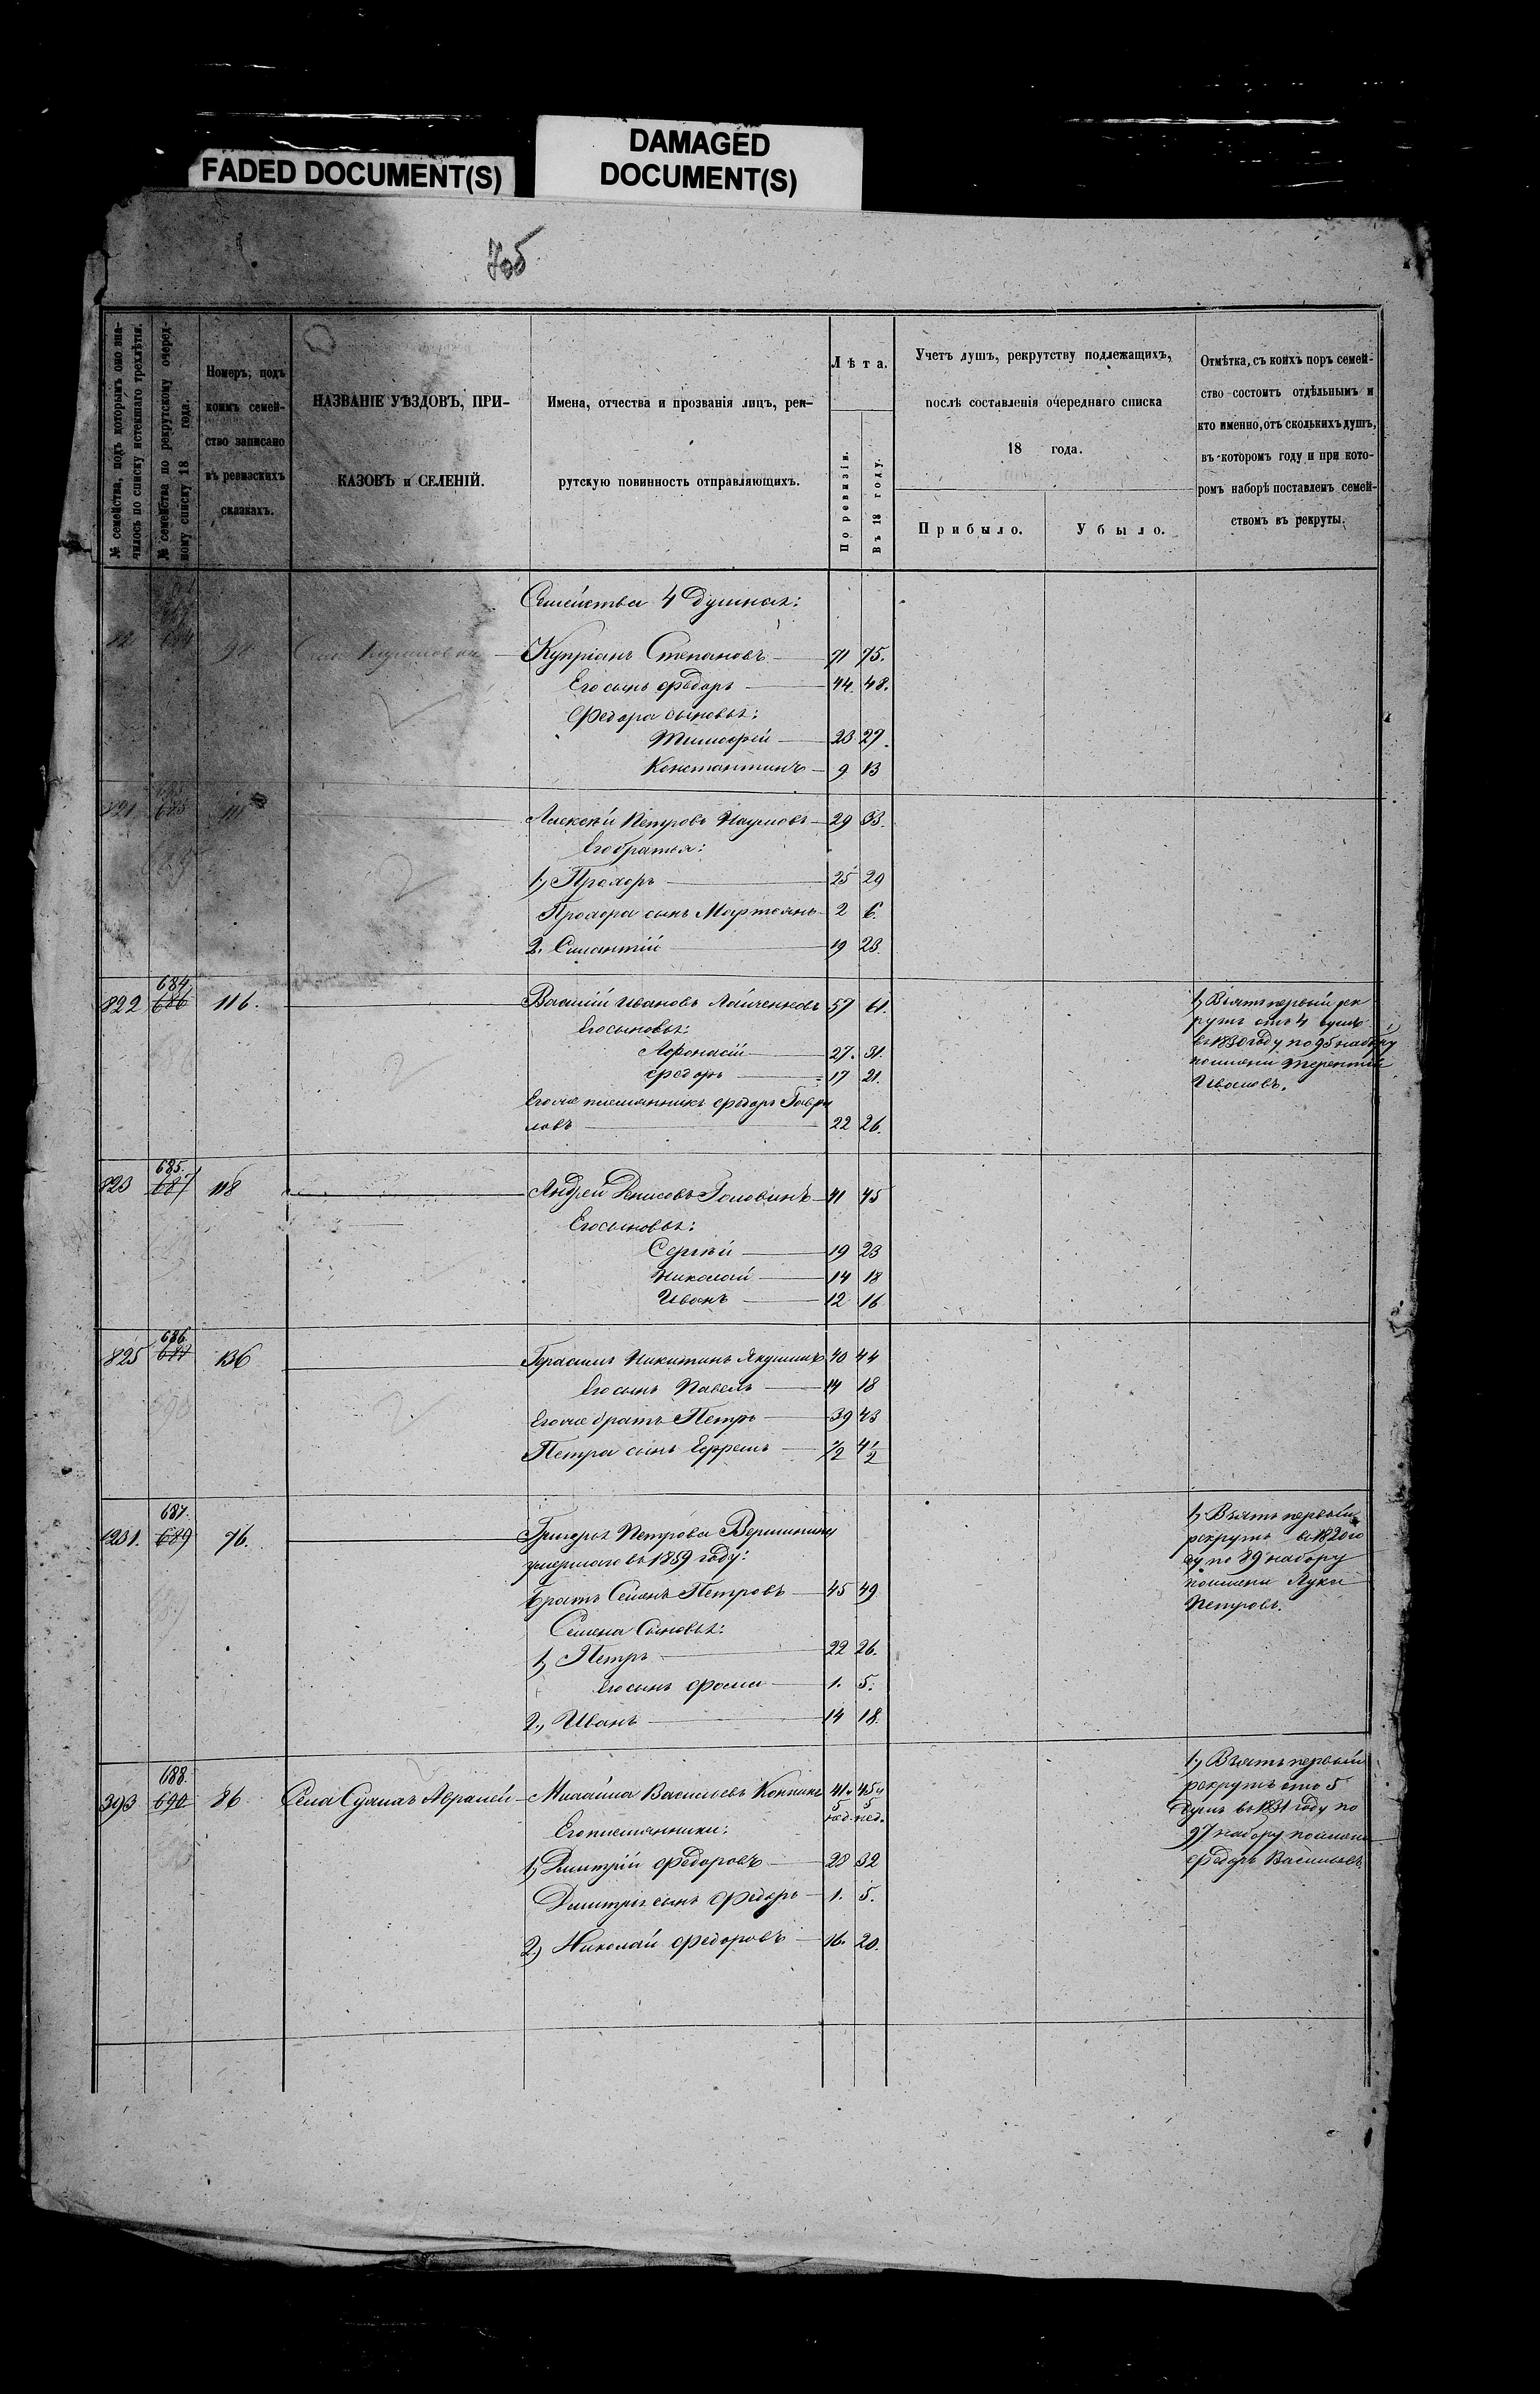 FADED DOCUMENT(S)
DAMAGED
DOCUMENT(S)
№ семейства, подъ которымъ оно зна-
чилось по списку истекшаго трехлѣтія.
№ семейства по рекрутскому очеред-
ному списку 18 года.
Номеръ, подъ
коимъ семей-
ство записано
въ ревизскихъ
сказкахъ.
НАЗВАНІЕ УѢЗДОВЪ, ПРИ-
КАЗОВЪ и СЕЛЕНІЙ.
Имена, отчества и прозванія лицъ, рек-
рутскую повинность отправляющихъ.
Лѣта.
По ревизіи.
Въ 18 году.
Учетъ душъ, рекрутству подлежащихъ,
послѣ составленія очереднаго списка
18 года.
Прибыло.
Убыло.
Отмѣтка, съ коихъ поръ семей-
ство состоитъ отдѣльнымъ и
кто именно, отъ сколькихъ душъ,
въ котором году и при кото-
ромъ наборѣ поставленъ семей-
ствомъ въ рекруты.
Семейства 4 душныя:
Купріанъ Степановъ 71 75.
Его сынъ Федоръ 44 48.
Федора сыновья:
Тимофей 23 27.
Константинъ 9 13
821 685 111
Алексѣй Петровъ Наумовъ 29 33.
Его братья:
1, Прохоръ 25 29
Прохора сынъ Мартьянъ 2 6.
2. Силантій 19 23.
684
822 686 116.
Василій Ивановъ 57 61.
Его сыновья:
Афонасій 27. 31.
Федоръ 17 21.
Его же племянникъ Федоръ Гаври
ловъ 22 26.
1, Взятъ первый рек
рутъ отъ 4 душъ
въ 1830 году по 95 набору
по имени Терентій
Ивановъ.
685.
823 687 118
Андрей Денисовъ Головинъ 41 45
Его сыновья:
Сергѣй 19 23
Николай 14 18
Иванъ 12 16
686
825 688 136
Герасимъ Никитинъ Якушинъ 40 44
Его сынъ Павелъ 14 18
Его же братъ Петръ 39 43
Петра сынъ Ефремъ 1/2 4 1/2
687.
1231. 689 76.
Григорья Петрова Вершинина
умершаго въ 1859 году:
Братъ Семенъ Петровъ 45 49
Семена Сыновья:
1, Петръ 22 26.
Его сынъ Фома 1. 5.
2., Иванъ 14 18.
1, Взятъ первый
рекрутъ въ 1820 го
ду по 89 набору
по имени Лука
Петровъ.
688.
393 690 86 Села
Михайла Васильевъ 41 45
5 нед. 5 нед.
Его племянники:
1, Дмитрій Федоровъ 28 32
Дмитрія сынъ Федоръ 1. 5.
2, Николай Федоровъ 16. 20.
1, Взятъ первый
рекрутъ отъ 5
душъ въ 1831 году по
97 набору по имени
Федоръ Васильевъ